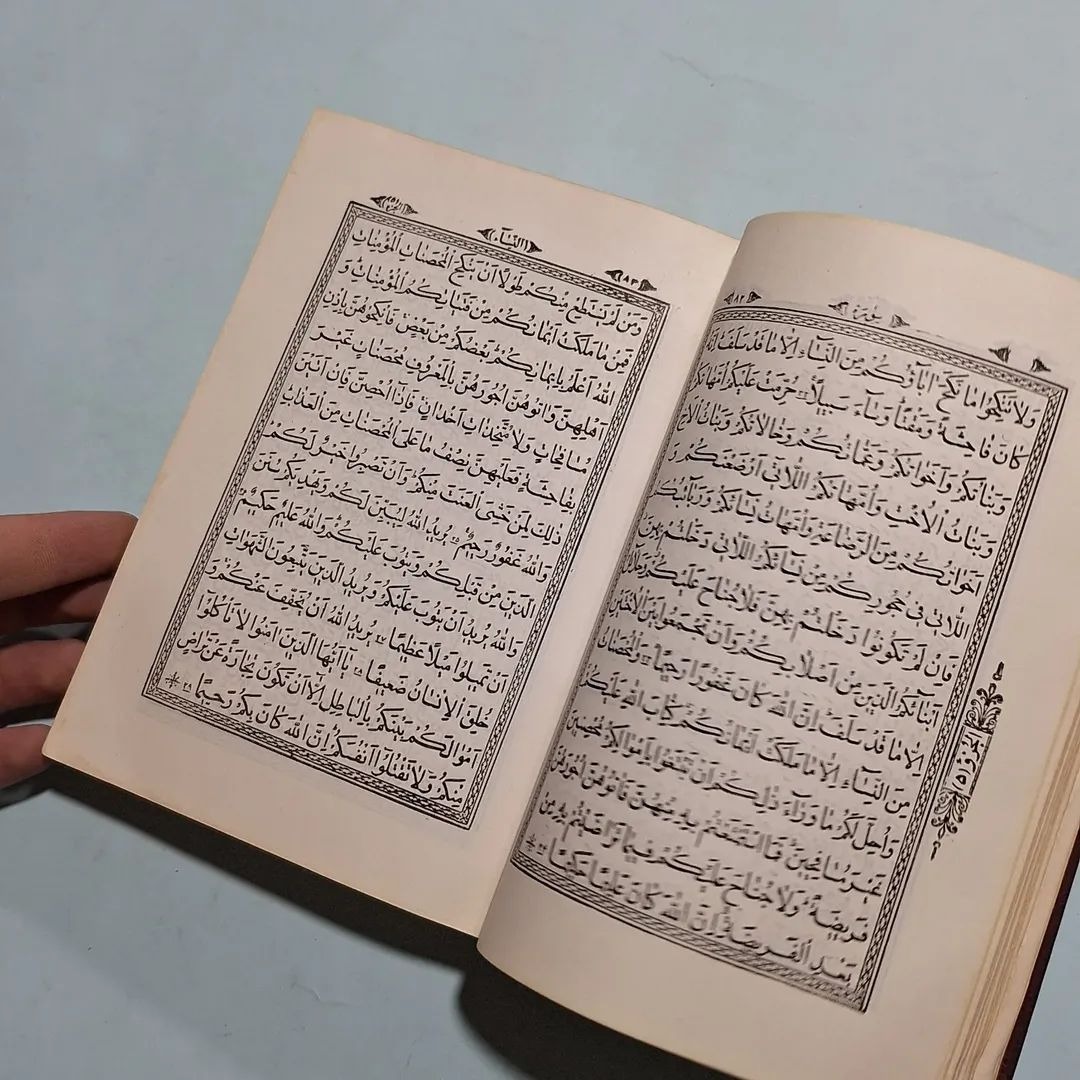 ٨٢
وَلَا تَنْكِحُوا مَا نَكَحَ اٰبَآؤُكُمْ مِنَ النِّسَآءِ اِلَّا مَا قَدْ سَلَفَ اِنَّهُ
كَانَ فَاحِشَةً وَمَقْتًا وَسَآءَ سَبِيلًا ٢٢ حُرِّمَتْ عَلَيْكُمْ اُمَّهَاتُكُمْ
وَبَنَاتُكُمْ وَاَخَوَاتُكُمْ وَعَمَّاتُكُمْ وَخَالَاتُكُمْ وَبَنَاتُ الْاَخِ
وَبَنَاتُ الْاُخْتِ وَاُمَّهَاتُكُمُ اللَّاتِي اَرْضَعْنَكُمْ وَ
اَخَوَاتُكُمْ مِنَ الرَّضَاعَةِ وَاُمَّهَاتُ نِسَآئِكُمْ وَرَبَآئِبُكُمُ
اللَّاتِي فِي حُجُورِكُمْ مِنْ نِسَآئِكُمُ اللَّاتِي دَخَلْتُمْ بِهِنَّ
فَاِنْ لَمْ تَكُونُوا دَخَلْتُمْ بِهِنَّ فَلَا جُنَاحَ عَلَيْكُمْ وَحَلَآئِلُ
اَبْنَآئِكُمُ الَّذِينَ مِنْ اَصْلَابِكُمْ وَاَنْ تَجْمَعُوا بَيْنَ الْاُخْتَيْنِ
اِلَّا مَا قَدْ سَلَفَ اِنَّ اللّٰهَ كَانَ غَفُورًا رَحِيمًا ٢٣ وَالْمُحْصَنَاتُ
مِنَ النِّسَآءِ اِلَّا مَا مَلَكَتْ اَيْمَانُكُمْ كِتَابَ اللّٰهِ عَلَيْكُمْ
وَاُحِلَّ لَكُمْ مَا وَرَآءَ ذٰلِكُمْ اَنْ تَبْتَغُوا بِاَمْوَالِكُمْ مُحْصِنِينَ
غَيْرَ مُسَافِحِينَ فَمَا اسْتَمْتَعْتُمْ بِهِ مِنْهُنَّ فَاٰتُوهُنَّ اُجُورَهُنَّ
فَرِيضَةً وَلَا جُنَاحَ عَلَيْكُمْ فِيمَا تَرَاضَيْتُمْ بِهِ مِنْ
بَعْدِ الْفَرِيضَةِ اِنَّ اللّٰهَ كَانَ عَلِيمًا حَكِيمًا ٢٤
الجزو ٥
٨٣
النِّسَآء
وَمَنْ لَمْ يَسْتَطِعْ مِنْكُمْ طَوْلًا اَنْ يَنْكِحَ الْمُحْصَنَاتِ الْمُؤْمِنَاتِ
فَمِنْ مَا مَلَكَتْ اَيْمَانُكُمْ مِنْ فَتَيَاتِكُمُ الْمُؤْمِنَاتِ وَ
اللّٰهُ اَعْلَمُ بِاِيمَانِكُمْ بَعْضُكُمْ مِنْ بَعْضٍ فَانْكِحُوهُنَّ بِاِذْنِ
اَهْلِهِنَّ وَاٰتُوهُنَّ اُجُورَهُنَّ بِالْمَعْرُوفِ مُحْصَنَاتٍ غَيْرَ
مُسَافِحَاتٍ وَلَا مُتَّخِذَاتِ اَخْدَانٍ فَاِذَا اُحْصِنَّ فَاِنْ اَتَيْنَ
بِفَاحِشَةٍ فَعَلَيْهِنَّ نِصْفُ مَا عَلَى الْمُحْصَنَاتِ مِنَ الْعَذَابِ
ذٰلِكَ لِمَنْ خَشِيَ الْعَنَتَ مِنْكُمْ وَاَنْ تَصْبِرُوا خَيْرٌ لَكُمْ
وَاللّٰهُ غَفُورٌ رَحِيمٌ ٢٥ يُرِيدُ اللّٰهُ لِيُبَيِّنَ لَكُمْ وَيَهْدِيَكُمْ سُنَنَ
الَّذِينَ مِنْ قَبْلِكُمْ وَيَتُوبَ عَلَيْكُمْ وَاللّٰهُ عَلِيمٌ حَكِيمٌ ٢٦
وَاللّٰهُ يُرِيدُ اَنْ يَتُوبَ عَلَيْكُمْ وَيُرِيدُ الَّذِينَ يَتَّبِعُونَ الشَّهَوَاتِ
اَنْ تَمِيلُوا مَيْلًا عَظِيمًا ٢٧ يُرِيدُ اللّٰهُ اَنْ يُخَفِّفَ عَنْكُمْ وَ
خُلِقَ الْاِنْسَانُ ضَعِيفًا ٢٨ يَا اَيُّهَا الَّذِينَ اٰمَنُوا لَا تَأْكُلُوا
اَمْوَالَكُمْ بَيْنَكُمْ بِالْبَاطِلِ اِلَّا اَنْ تَكُونَ تِجَارَةً عَنْ تَرَاضٍ
مِنْكُمْ وَلَا تَقْتُلُوا اَنْفُسَكُمْ اِنَّ اللّٰهَ كَانَ بِكُمْ رَحِيمًا ٢٩